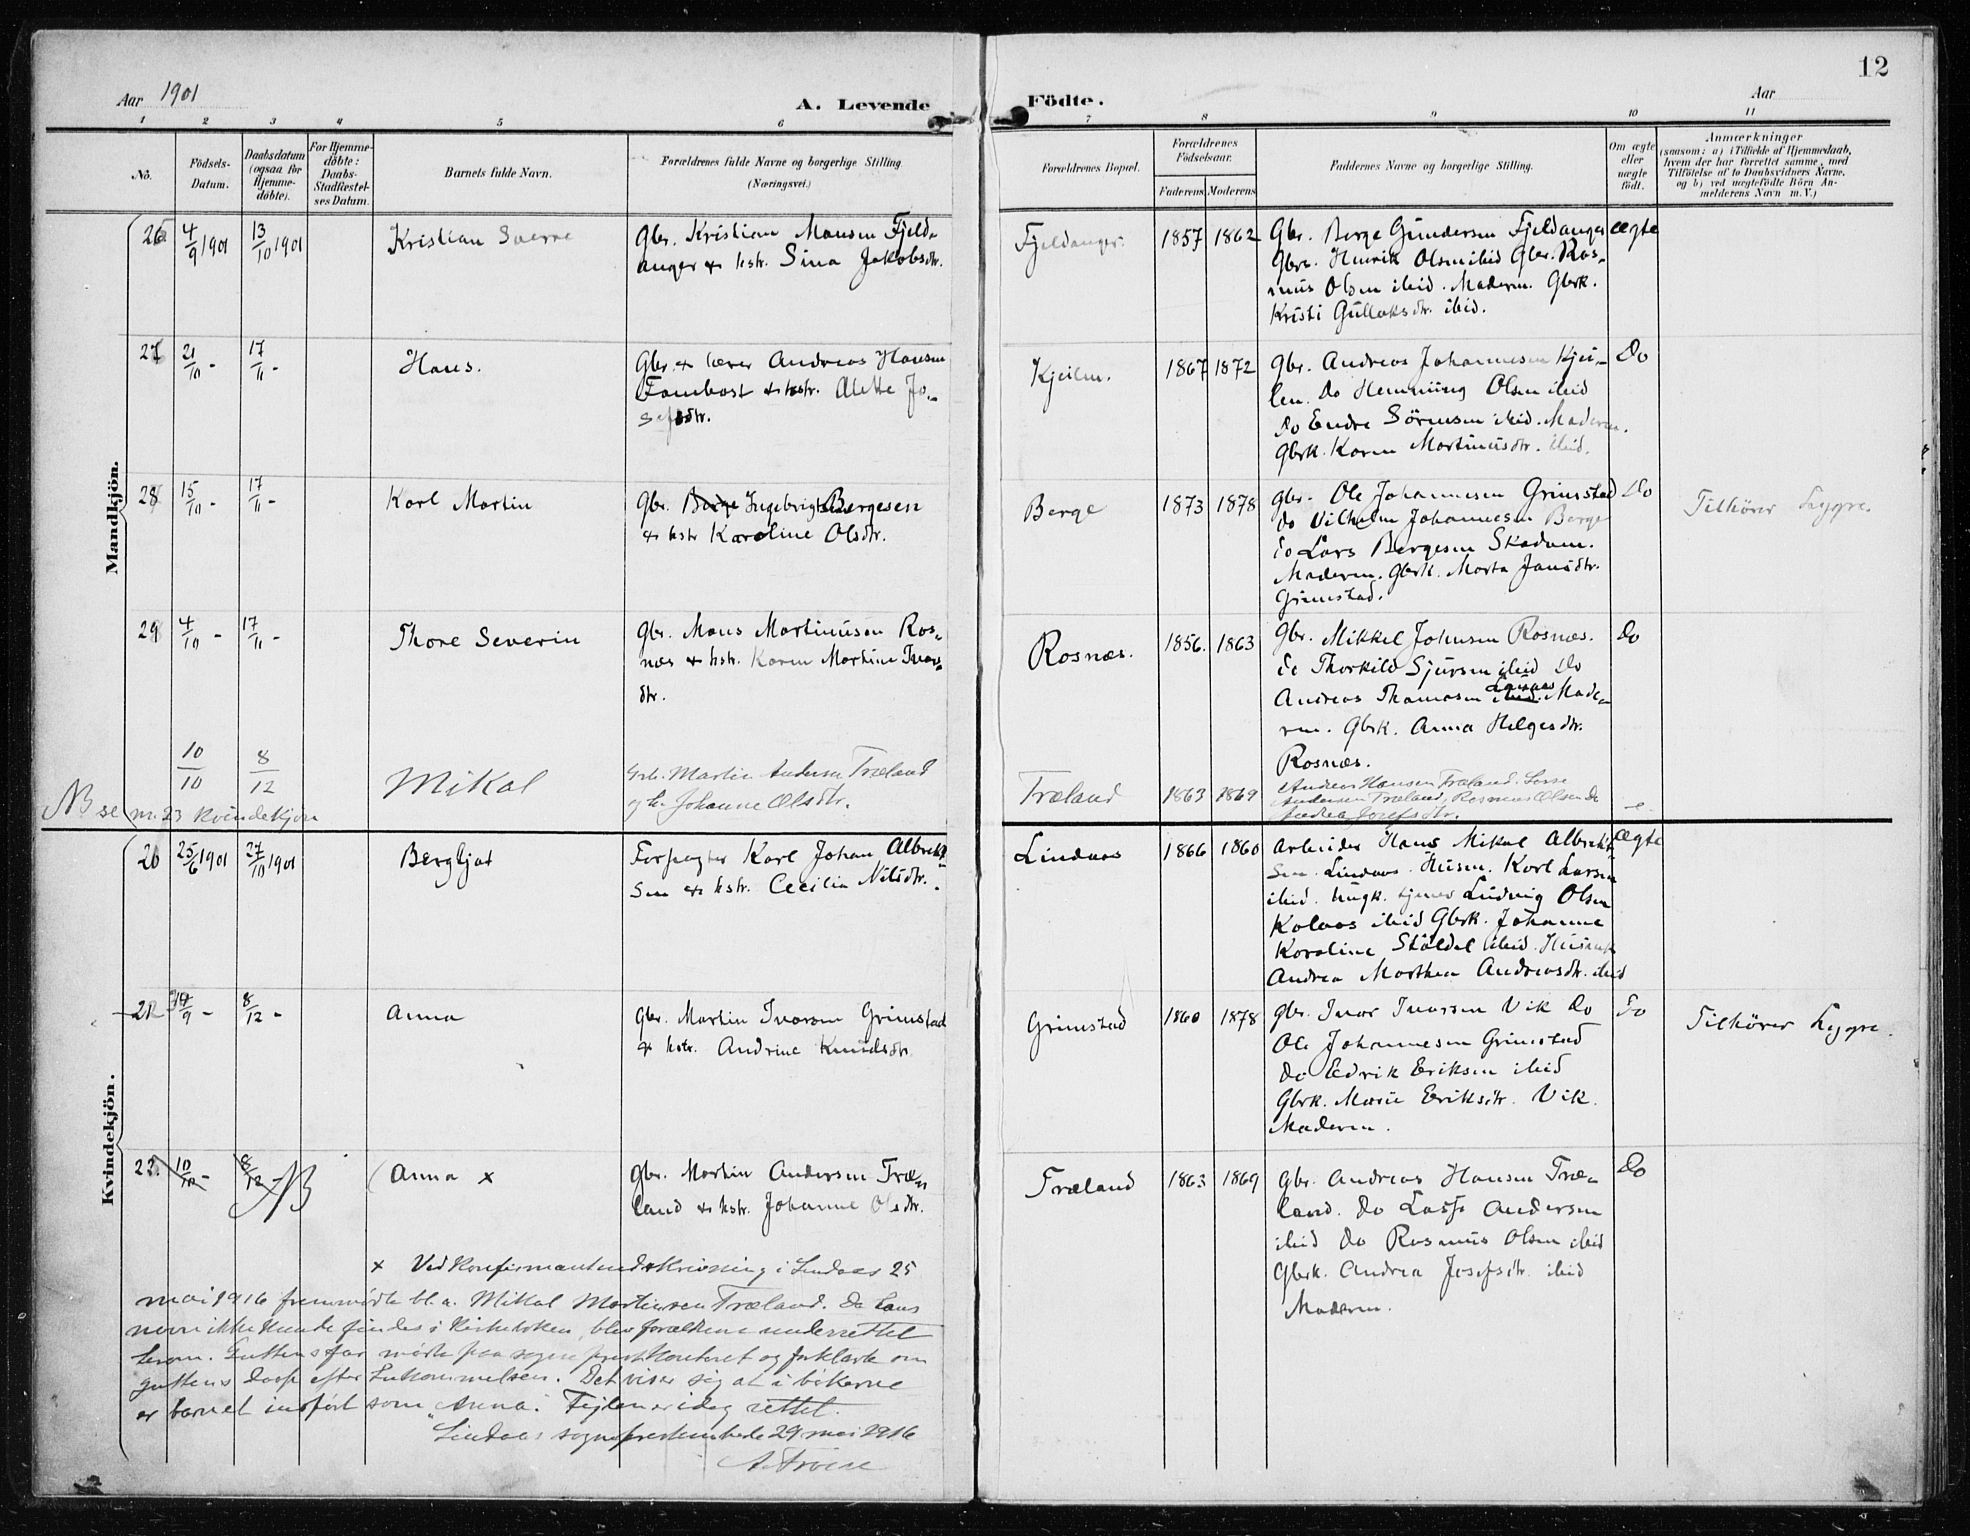 12
Aar 1901
A. Levende Födte.
Aar
1 2 3 4 5 6 7 8 9 10 11
No.
Födsels-
Datum.
Daabsdatum
(ogsaa for
Hjemme-
döbte).
For Hjemme-
döbte:
Daabs-
Stadfæstel-
ses Datum.
Barnets fulde Navn.
Forældrenes fulde Navne og borgerlige Stilling.
(Næringsvei.)
Forældrenes Bopæl.
Forældrenes
Födselsaar.
Faderens
Moderens
Faddernes Navne og borgerlige Stilling.
Om ægte
eller
uægte
födt.
Anmærkninger
(saasom: a) i Tilfælde af Hjemmedaab,
hvem der har forrettet samme, med
Tilföielse af to Daabsvidners Navne,
og b) ved uægtefödte Börn An-
melderens Navn m. V.)
Mandkjön.
26 4/9 1901 13/10 1901 Kristian Sverre
Gbr. Kristian Monsen Fjeld-
anger & hstr. Sina Jakobsdtr.
Fjeldanger. 1857 1862
Gbr. Berge Gundersen Fjeldanger
Gbr. Henrik Olsen ibid Gbr. Ras-
mus Olsen ibid. Moderen. Gbrk.
Kristi Gullaksdtr. ibid.
ægte
27 21/10 - 17/11 - Hans.
Gbr. & lærer Andreas Hansen
Fonebost & hstr. Alette Jo-
sefsdtr.
Kjeilen. 1867 1872
Gbr. Andreas Johannesen Kjei-
len. do Hemming Olsen ibid
do Endre Sörensen ibid. Moderen.
Gbrk. Karen Martinusdtr. ibid.
Do
28 15/10 - 17/11 - Karl Martin
Gbr. Berge Ingebrigt Bergesen
& hstr Karoline Olsdtr.
Berge 1873 1878
Gbr. Ole Johannesen Grimstad
do Vilhelm Johannesen Berge
do Lars Bergesen Skodven.
Moderen. Gbrk. Marta Jansdtr.
Grimstad.
Do
Tilhörer Lygre.
29 4/10 - 17/11 - Thore Severin
Gbr. Mons Martinusen Ros-
næs & hstr. Karen Martine Ivars-
dtr.
Rosnæs. 1856. 1863
Gbr. Mikkel Johnsen Rosnæs.
do Thorkild Sjursen ibid Do
Andreas Thomasen ibid. Mode-
ren. Gbrk. Anna Helgesdtr.
Rosnæs.
Do
10/10 8/12 Mikal
Gbr. Martin Andersen Træland
og h. Johanne Olsdtr.
Træland 1863 1869
Andreas Hansen Træland. Lasse
Andersen Træland, Rasmus Olsen do
Andrea Josefsdtr.
NB se nr. 23 Kvindekjön
Kvindekjön.
20 25/6 1901 27/10 1901 Bergljot
Forpagter Karl Johan Albrekt-
sen & hstr. Cecilia Nilsdtr.
Lindaas 1866 1860
Arbeider Hans Mikal Albrekt-
sen. Lindaas. Husm. Karl Larsen
ibid. Ungk. tjener Ludvig Olsen
Kolaas ibid Gbrk. Johanne
Karoline Stöldal ibid.
Andrea Marthea Andreasdtr. ibid
ægte
21 8/12 - Anna
Gbr. Martin Ivarsen Grimstad
& hstr. Andrine Knudsdtr.
Grimstad 1860 1878
Gbr. Ivar Ivarsen Vik Do
Ole Johannesen Grimstad
Do Edrik Eriksen ibid
Gbrk. Marie Eriksdtr. Vik.
Moderen.
Do
Tilhörer Lygre.
22. 10/10 - 8/12 - NB (Anna x
Gbr. Martin Andersen Træ-
land & hstr. Johanne Olsdtr.
Træland 1863 1869
Gbr. Andreas Hansen Træ-
land. Do Lasse Andersen
ibid Do Rasmus Olsen ibid
Gbrk. Andrea Josefsdtr. ibid
Moderen.
Do
x Ved Konfirmantindskrivning i Lindaas 25
mai 1916 fremmødte bl. a. Mikal Martinsen Træland. Da hans
navn ikke kunde findes i kirkeboken, blev forældrene underrettet
herom. Guttens far mødte paa sogneprestkontoret og forklarte om
guttens daap efter hukommelsen. Det viser sig at i bøkerne
er barnet indført som "Anna". Feilen er idag rettet.
Lindaas sogneprestembede 29 mai 1916